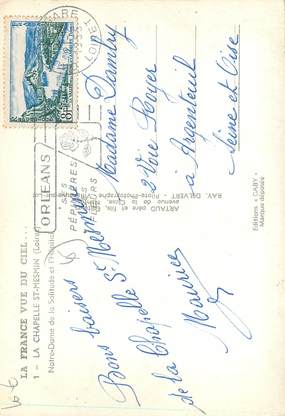 LA FRANCE VUE DU CIEL...
1 - LA CHAPELLE ST-MESMIN (Loiret)
Notre-Dame de la Solitude et
Bons baisers
de la Chapelle St Mesmin
Maurice
ORLEANS
SES
PÉPINIÈRES
SES
GARE
LOIRET
Madame Dambry
2 Voie Royer
à Argenteuil
Seine et Oise
Editions « GABY »
Marque déposée
ARTAUD père et fils,
avenue de la Close,
RAY. DELVERT - Pilote-Photographe